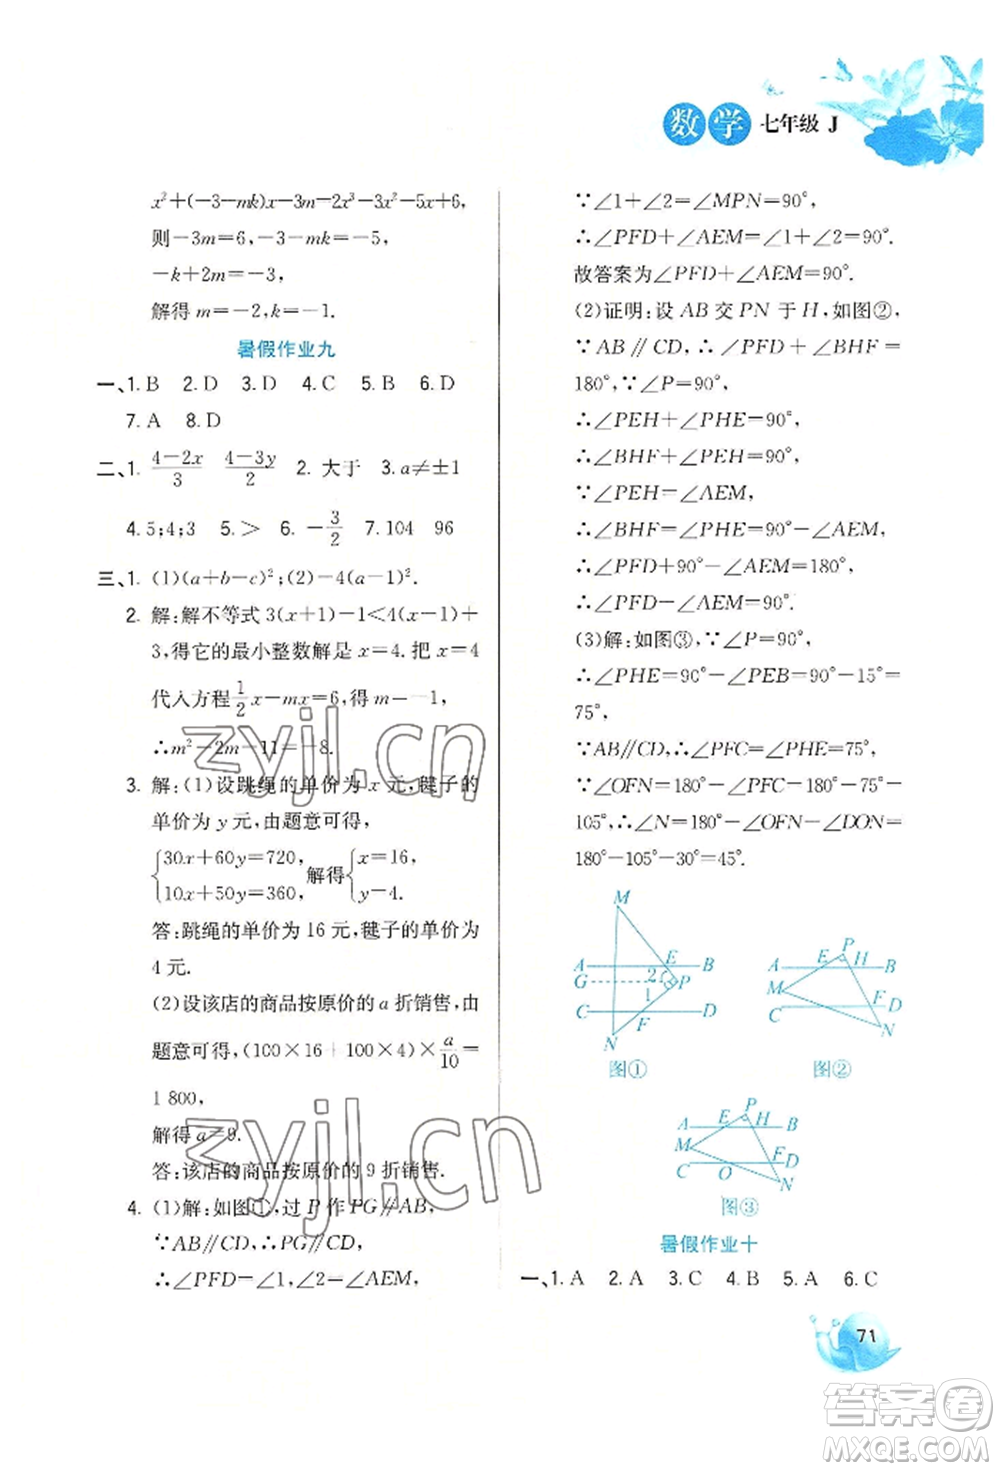 数学 七年级 J
x²+(-3-mk)x-3m-2x³-3x²-5x+6,
则-3m=6, -3-mk=-5,
-k+2m=-3,
解得 m=-2,k=-1.
暑假作业九
一、1. B 2. D 3. D 4. C 5. B 6. D
7. A 8. D
二、1. (4-2x)/3 (4-3y)/2 2. 大于 3. a≠±1
4. 5;4;3 5. > 6. -3/2 7. 104 96
三、1. (1)(a+b-c)²;(2)-4(a-1)².
2. 解:解不等式 3(x+1)-1<4(x-1)+
3,得它的最小整数解是 x=4. 把 x=4
代入方程 1/2 x-mx=6,得 m=-1,
∴m²-2m-11=-8.
3. 解:(1)设跳绳的单价为 x 元,毽子的
单价为 y 元,由题意可得,
{30x+60y=720, 解得 {x=16,
10x+50y=360, y-4.
答:跳绳的单价为 16 元,毽子的单价为
4 元.
(2)设该店的商品按原价的 a 折销售,由
题意可得,(100×16+100×4)×a/10=
1 800,
解得 a=9.
答:该店的商品按原价的 9 折销售.
4. (1)解:如图①,过 P 作 PG∥AB,
∵AB∥CD,∴PG∥CD,
∴∠PFD=∠1,∠2=∠AEM,
∵∠1+∠2=∠MPN=90°,
∴∠PFD+∠AEM=∠1+∠2=90°.
故答案为∠PFD+∠AEM=90°.
(2)证明:设 AB 交 PN 于 H,如图②,
∵AB∥CD,∴∠PFD+∠BHF=
180°,∵∠P=90°,
∴∠PEH+∠PHE=90°,
∵∠BHF+∠PEH,
∵∠PEH=∠AEM,
∴∠BHF=∠PHE=90°-∠AEM,
∴∠PFD+90°-∠AEM=180°,
∴∠PFD-∠AEM=90°.
(3)解:如图③,∵∠P=90°,
∴∠PHE=90°-∠PEB=90°-15°=
75°,
∵AB∥CD,∴∠PFC=∠PHE=75°,
∵∠OFN=180°-∠PFC-180°-75°-
105°,∴∠N=180°-∠OFN-∠DON=
180°-105°-30°=45°.
M
A E B
G 2 P
1
C F D
N
图①
P
A E H B
M
C F D
N
图②
P
A E H B
M
C O F D
N
图③
暑假作业十
一、1. A 2. A 3. C 4. B 5. A 6. C
71
zyjl.cn
zyjl.cn
答案圈
MXQE.COM